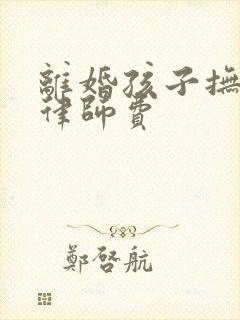 離婚孩子撫
律師費
鄭啓航